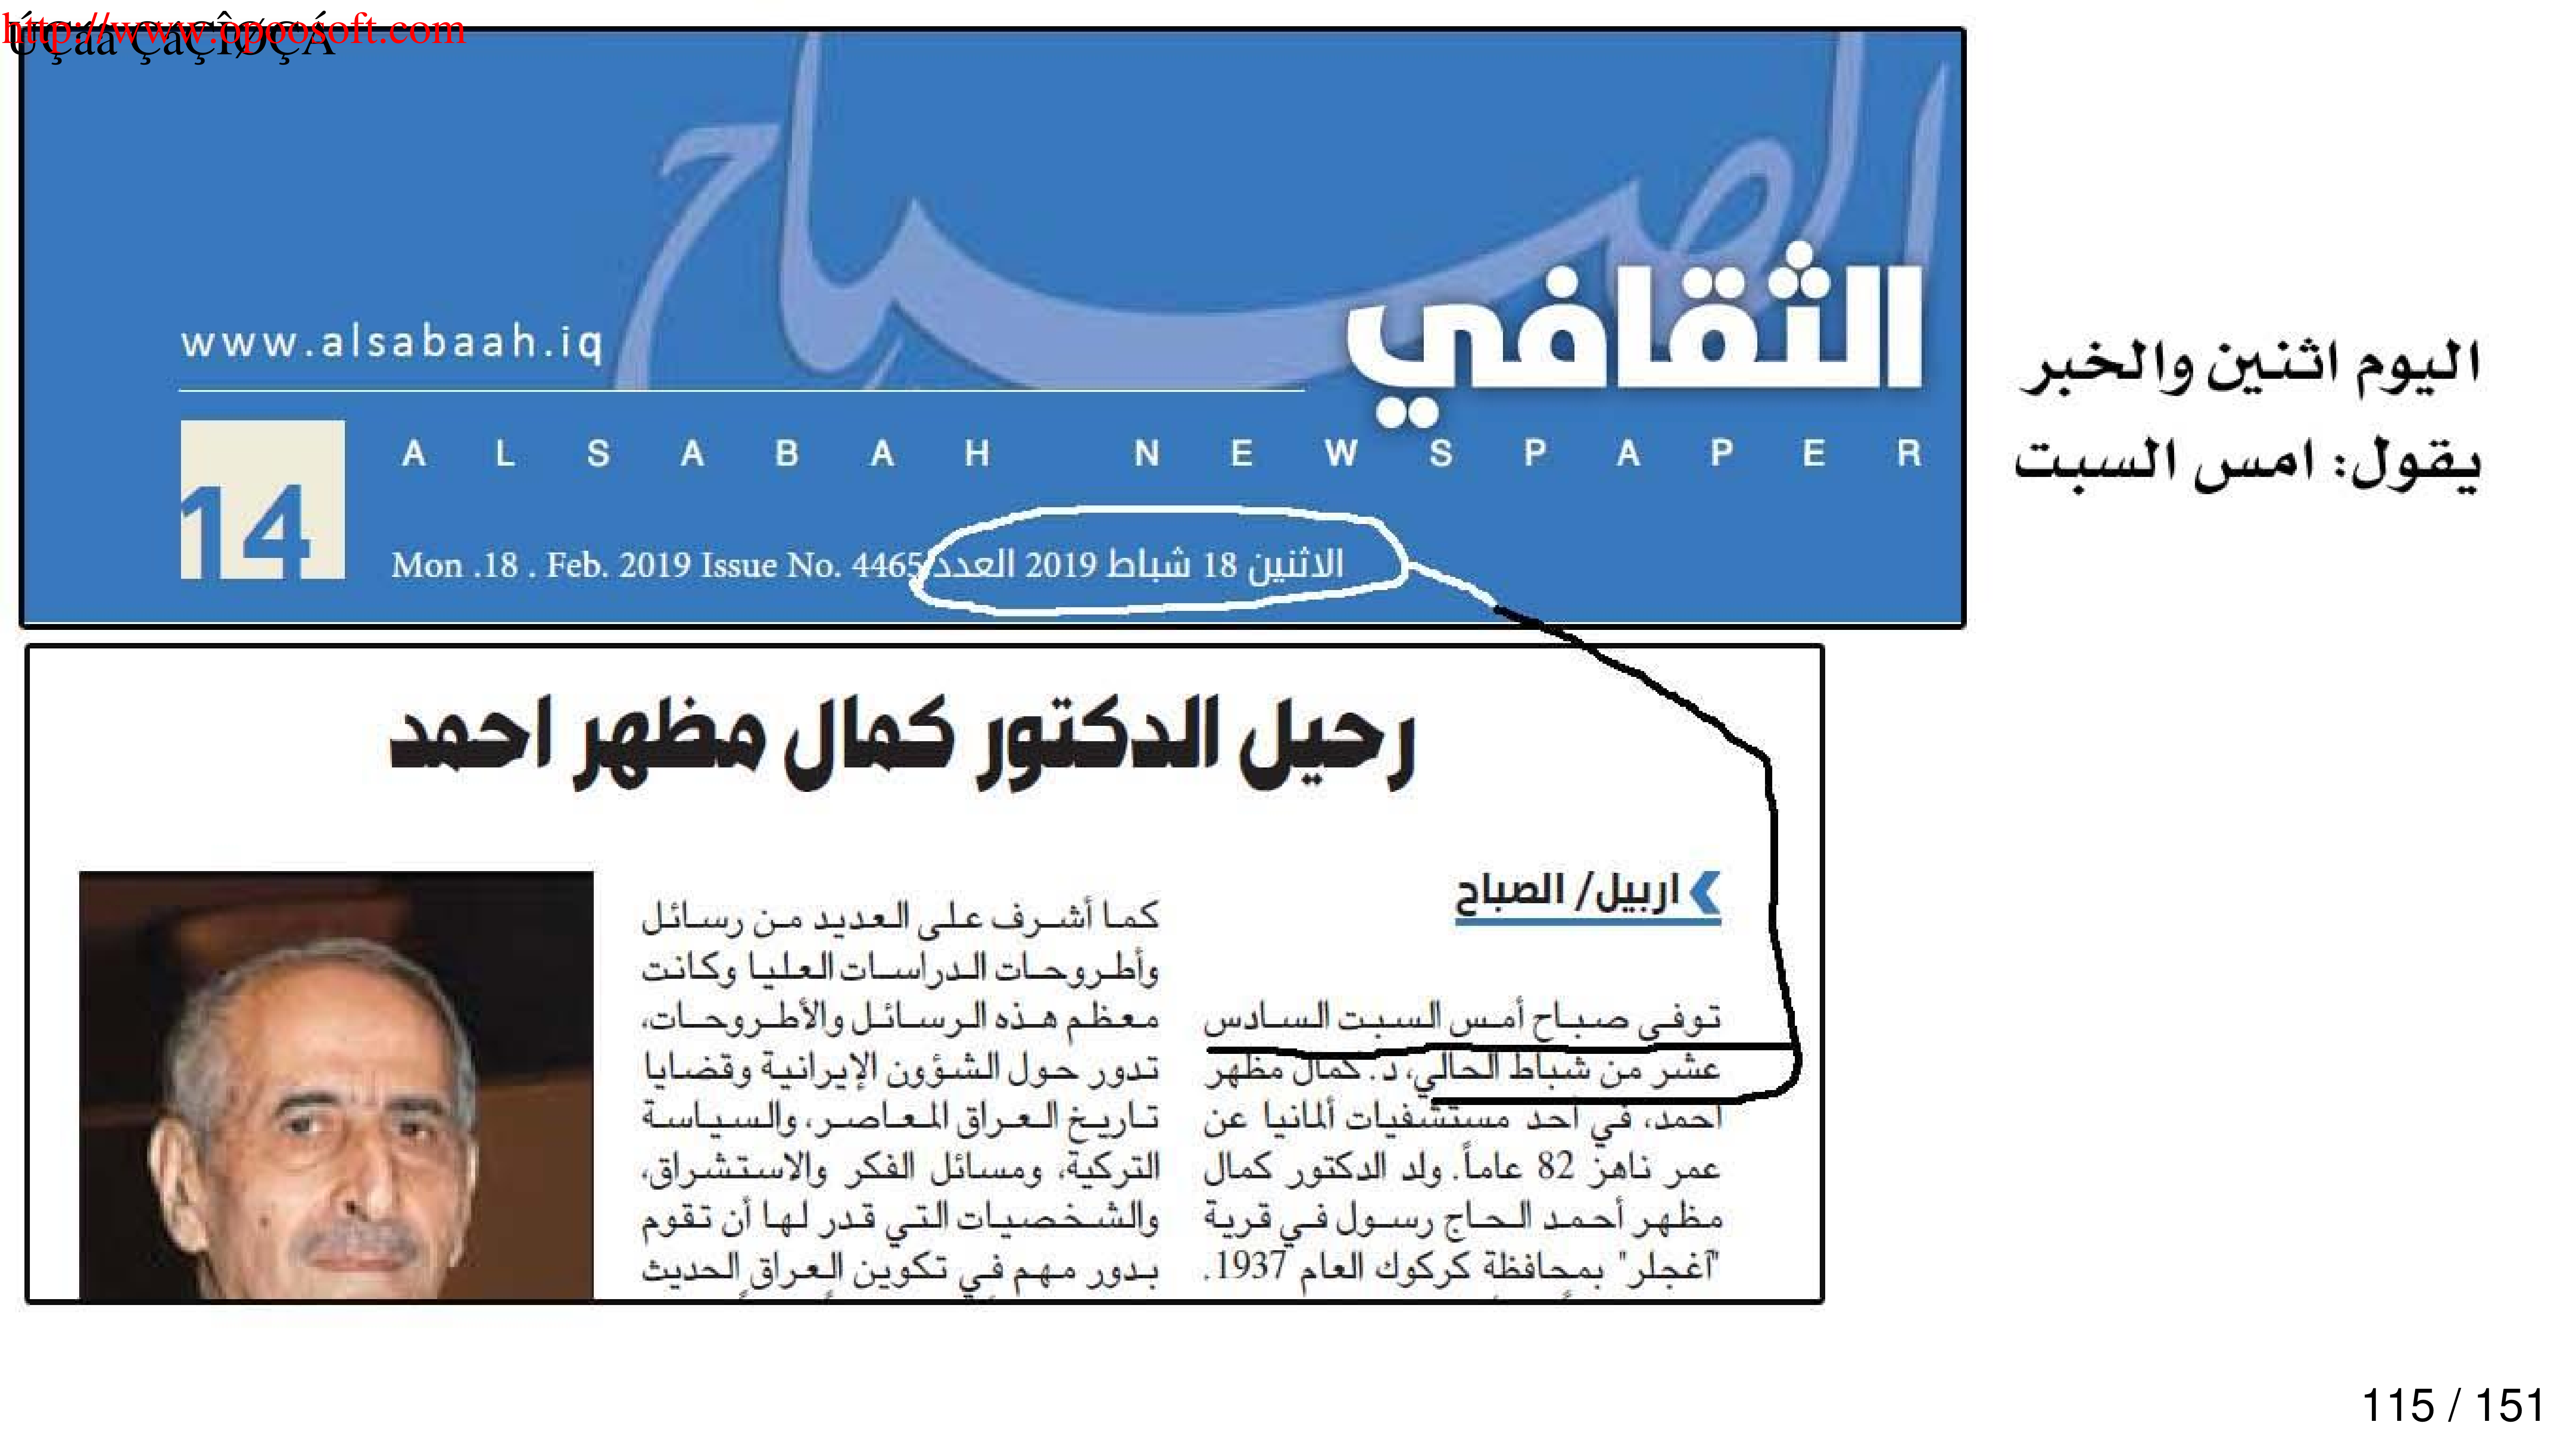 http://www.opoosoft.com
الصباح
الثقافي
www.alsabaah.iq
ALSABAH NEWSPAPER
14
الاثنين 18 شباط 2019 العدد Mon .18 . Feb. 2019 Issue No. 4465
اليوم اثنين والخبر
يقول: امس السبت
رحيل الدكتور كمال مظهر احمد
اربيل/ الصباح
توفى صباح أمس السبت السادس
عشر من شباط الحالي، د. كمال مظهر
احمد، في احد مستشفيات ألمانيا عن
عمر ناهز 82 عاماً. ولد الدكتور كمال
مظهر أحمد الحاج رسول في قرية
"آغجلر" بمحافظة كركوك العام 1937.
كما أشرف على العديد من رسائل
وأطروحات الدراسات العليا وكانت
معظم هذه الرسائل والأطروحات،
تدور حول الشؤون الإيرانية وقضايا
تاريخ العراق المعاصر، والسياسة
التركية، ومسائل الفكر والاستشراق،
والشخصيات التي قدر لها أن تقوم
بدور مهم في تكوين العراق الحديث
115 / 151